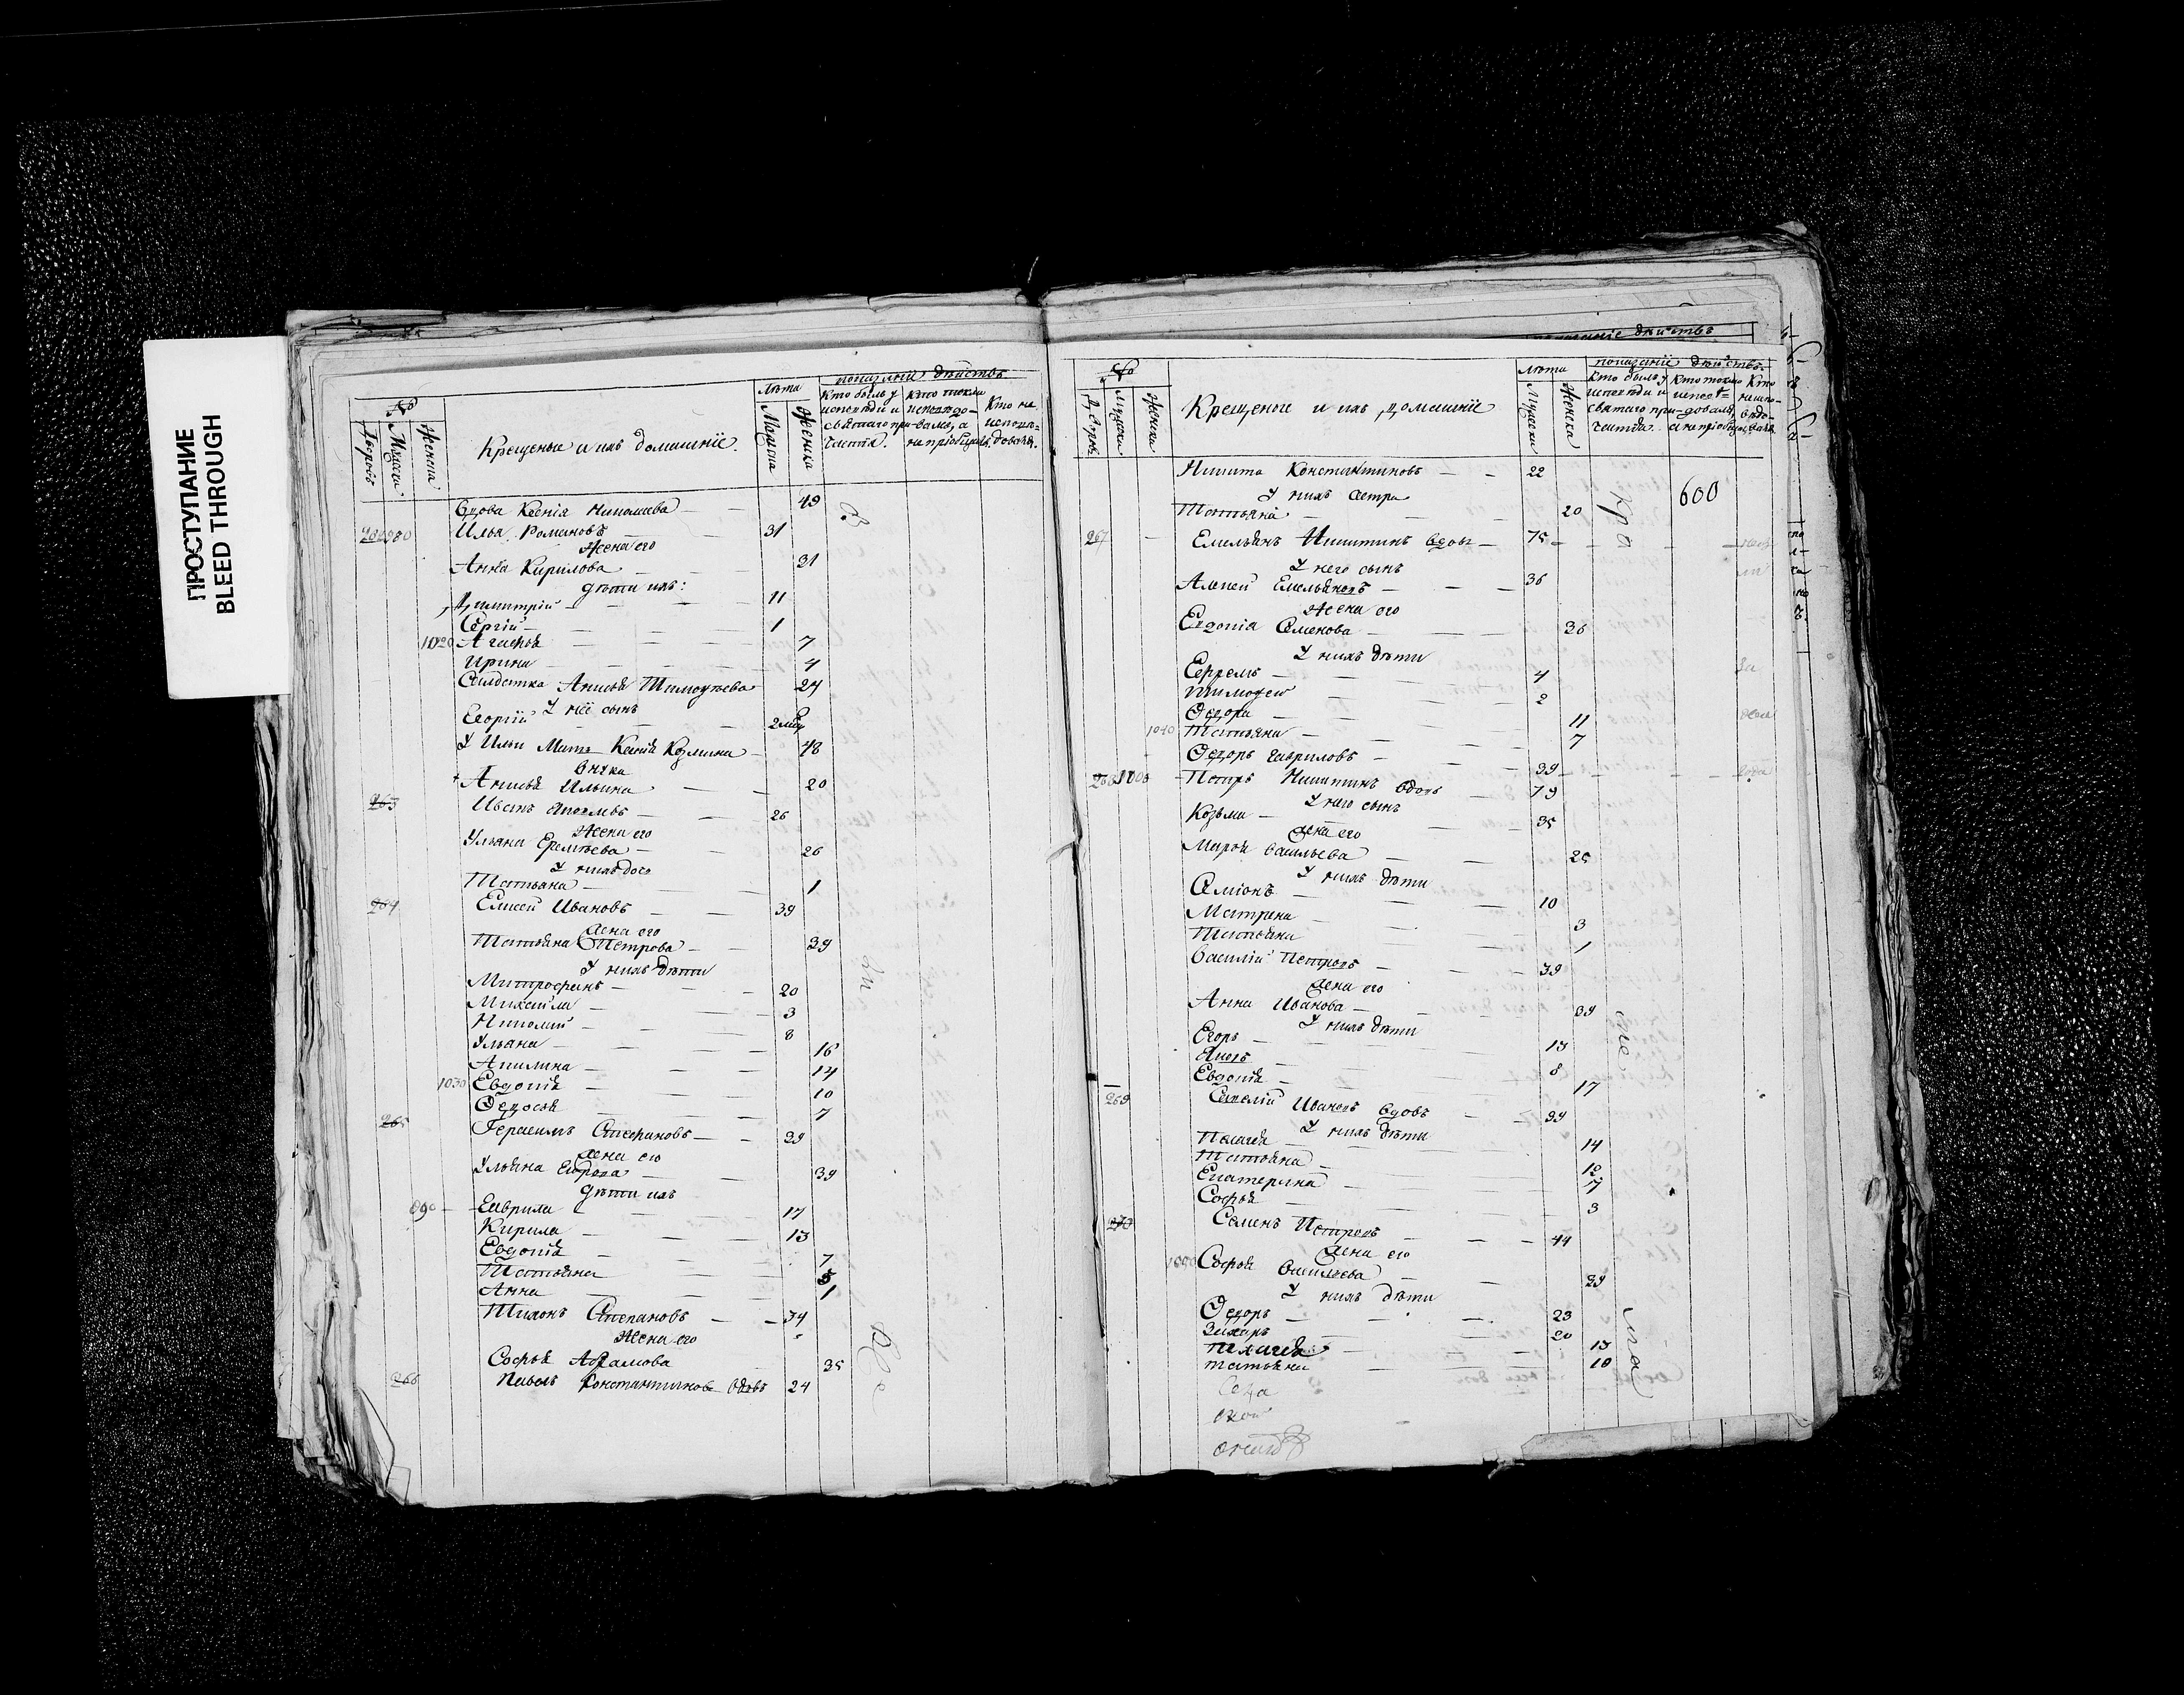 ПРОСТУПАНИЕ
BLEED THROUGH
№
Дворовъ
Мужеска
Женска
Крещеные и ихъ домашніе.
Лѣта
Мужеска
Женска
показаніе дѣйствъ
Кто былъ у исповѣди и святаго причастія.
Кто токмо исповѣдовалъ, а не пріобщилъ.
Кто не исповѣдовалъ.
Вдова Ксенія Николаева 49
Илья Романовъ 31
Жена его
Анна Кирилова 31
Дѣти ихъ:
Димитрій 11
Сергій 1
1020 Агафья 7
Ирина 4
Салдатка Анисья Тимофѣева 24
У нее сынъ
Георгій 2
У Ильи Мать Ксенія Козмина 48
Внука
Анисья Ильина 20
263 Иванъ 26
Жена его
Ульяна Еремѣева 26
У нихъ дочь
Татьяна 1
264 Елисей Ивановъ 39
Жена его
Татьяна Петрова 39
У нихъ дѣти
Митрофанъ 20
Михайла 3
Николай 8
Ульяна 16
Акилина 14
1030 Евдокія 10
Ѳедосья 7
265 Герасимъ Степановъ 39
Жена его
Ульяна 39
Дѣти ихъ
Гаврила 17
Кирила 13
Евдокія 7
Татьяна 5
Анна 1
Тихонъ Степановъ 34
Жена его
Софья Абрамова 35
266 Павелъ Константиновъ вдовъ 24
показаніе дѣйствъ
№
Дворовъ
Мужеска
Женска
Крещеные и ихъ домашніе
Лѣта
Мужеска
Женска
показаніе дѣйствъ.
Кто былъ у исповѣди и святаго причастія.
Кто токмо исповѣдовалъ, а не пріобщилъ
Кто не исповѣдовалъ
Никита Константиновъ 22
600
У нихъ сестра
Татьяна 20
267 Емельянъ Никитинъ вдовъ 75
У него сынъ
Алексей Емельяновъ 36
Жена его
Евдокія Семенова 36
У нихъ дѣти
Ефремъ 4
Тимофей 2
Ѳедора 11
1040 Татьяна 7
Ѳедоръ Гавриловъ 39
268 Петръ Никитинъ вдовъ 79
У него сынъ
Козьма 35
Жена его
Марья Васильева 25
У нихъ дѣти
Симіонъ 10
Матрена 3
Татьяна 1
Василій Петровъ 39
Жена его
Анна Иванова 39
У нихъ дѣти
Егоръ 13
Яковъ 8
Евдокія 17
269 Савелій Ивановъ вдовъ 39
У нихъ дѣти
Пелагея 14
Татьяна 12
Екатерина 7
Софья 3
270 Семенъ Петровъ 44
Жена его
Софья Васильева 39
У нихъ дѣти
Ѳедоръ 23
Захаръ 20
Пелагея 13
татьяна 10